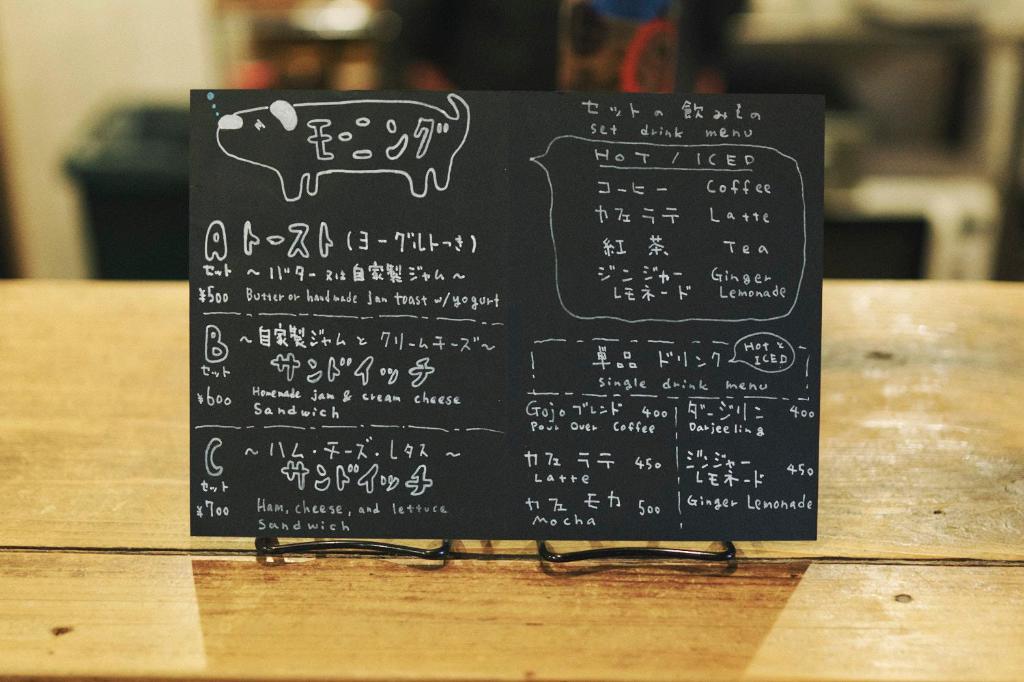 モーニング
A トースト (ヨーグルトつき)
セット ~ バター 又は 自家製 ジャム ~
¥500 Butter or handmade Jam toast w/ yogurt
B ~ 自家製ジャム と クリームチーズ ~
セット サンドイッチ
¥600 Homemade jam & cream cheese
Sandwich
C ~ ハム・チーズ・レタス ~
セット サンドイッチ
¥700 Ham, cheese, and lettuce
Sandwich
セットの 飲みもの
set drink menu
HOT / ICED
コーヒー Coffee
カフェ ラテ Latte
紅 茶 Tea
ジンジャー Ginger
レモネード Lemonade
単品 ドリンク HOT と
ICED
single drink menu
Gojo ブレンド 400
Pour Over Coffee
カフェ ラテ 450
Latte
カフェ モカ 500
Mocha
ダージリン 400
Darjeeling
ジンジャー
レモネード 450
Ginger Lemonade